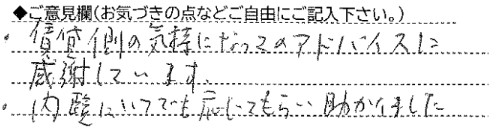 ◆ご意見欄(お気づきの点などご自由にご記入下さい。)
・賃貸側の気持になってのアドバイスに
感謝しています。
・内覧にいつでも応じてもらい助かりました